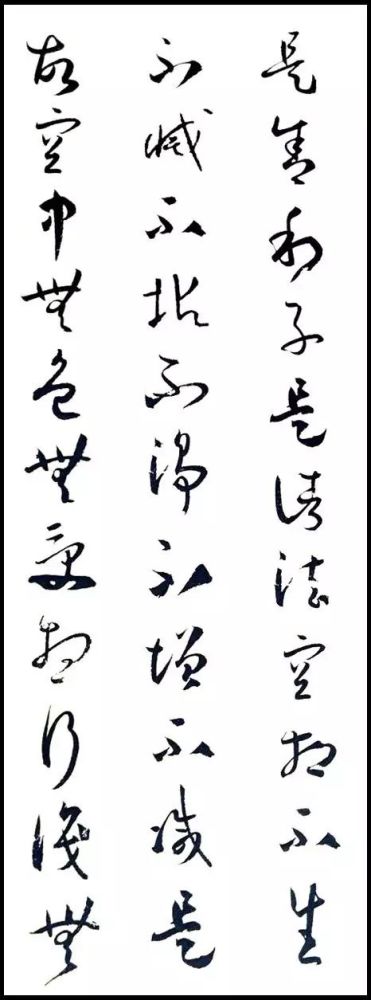 是舍利子是諸法空相不生
不滅不垢不淨不增不減是
故空中無色無受想行識無